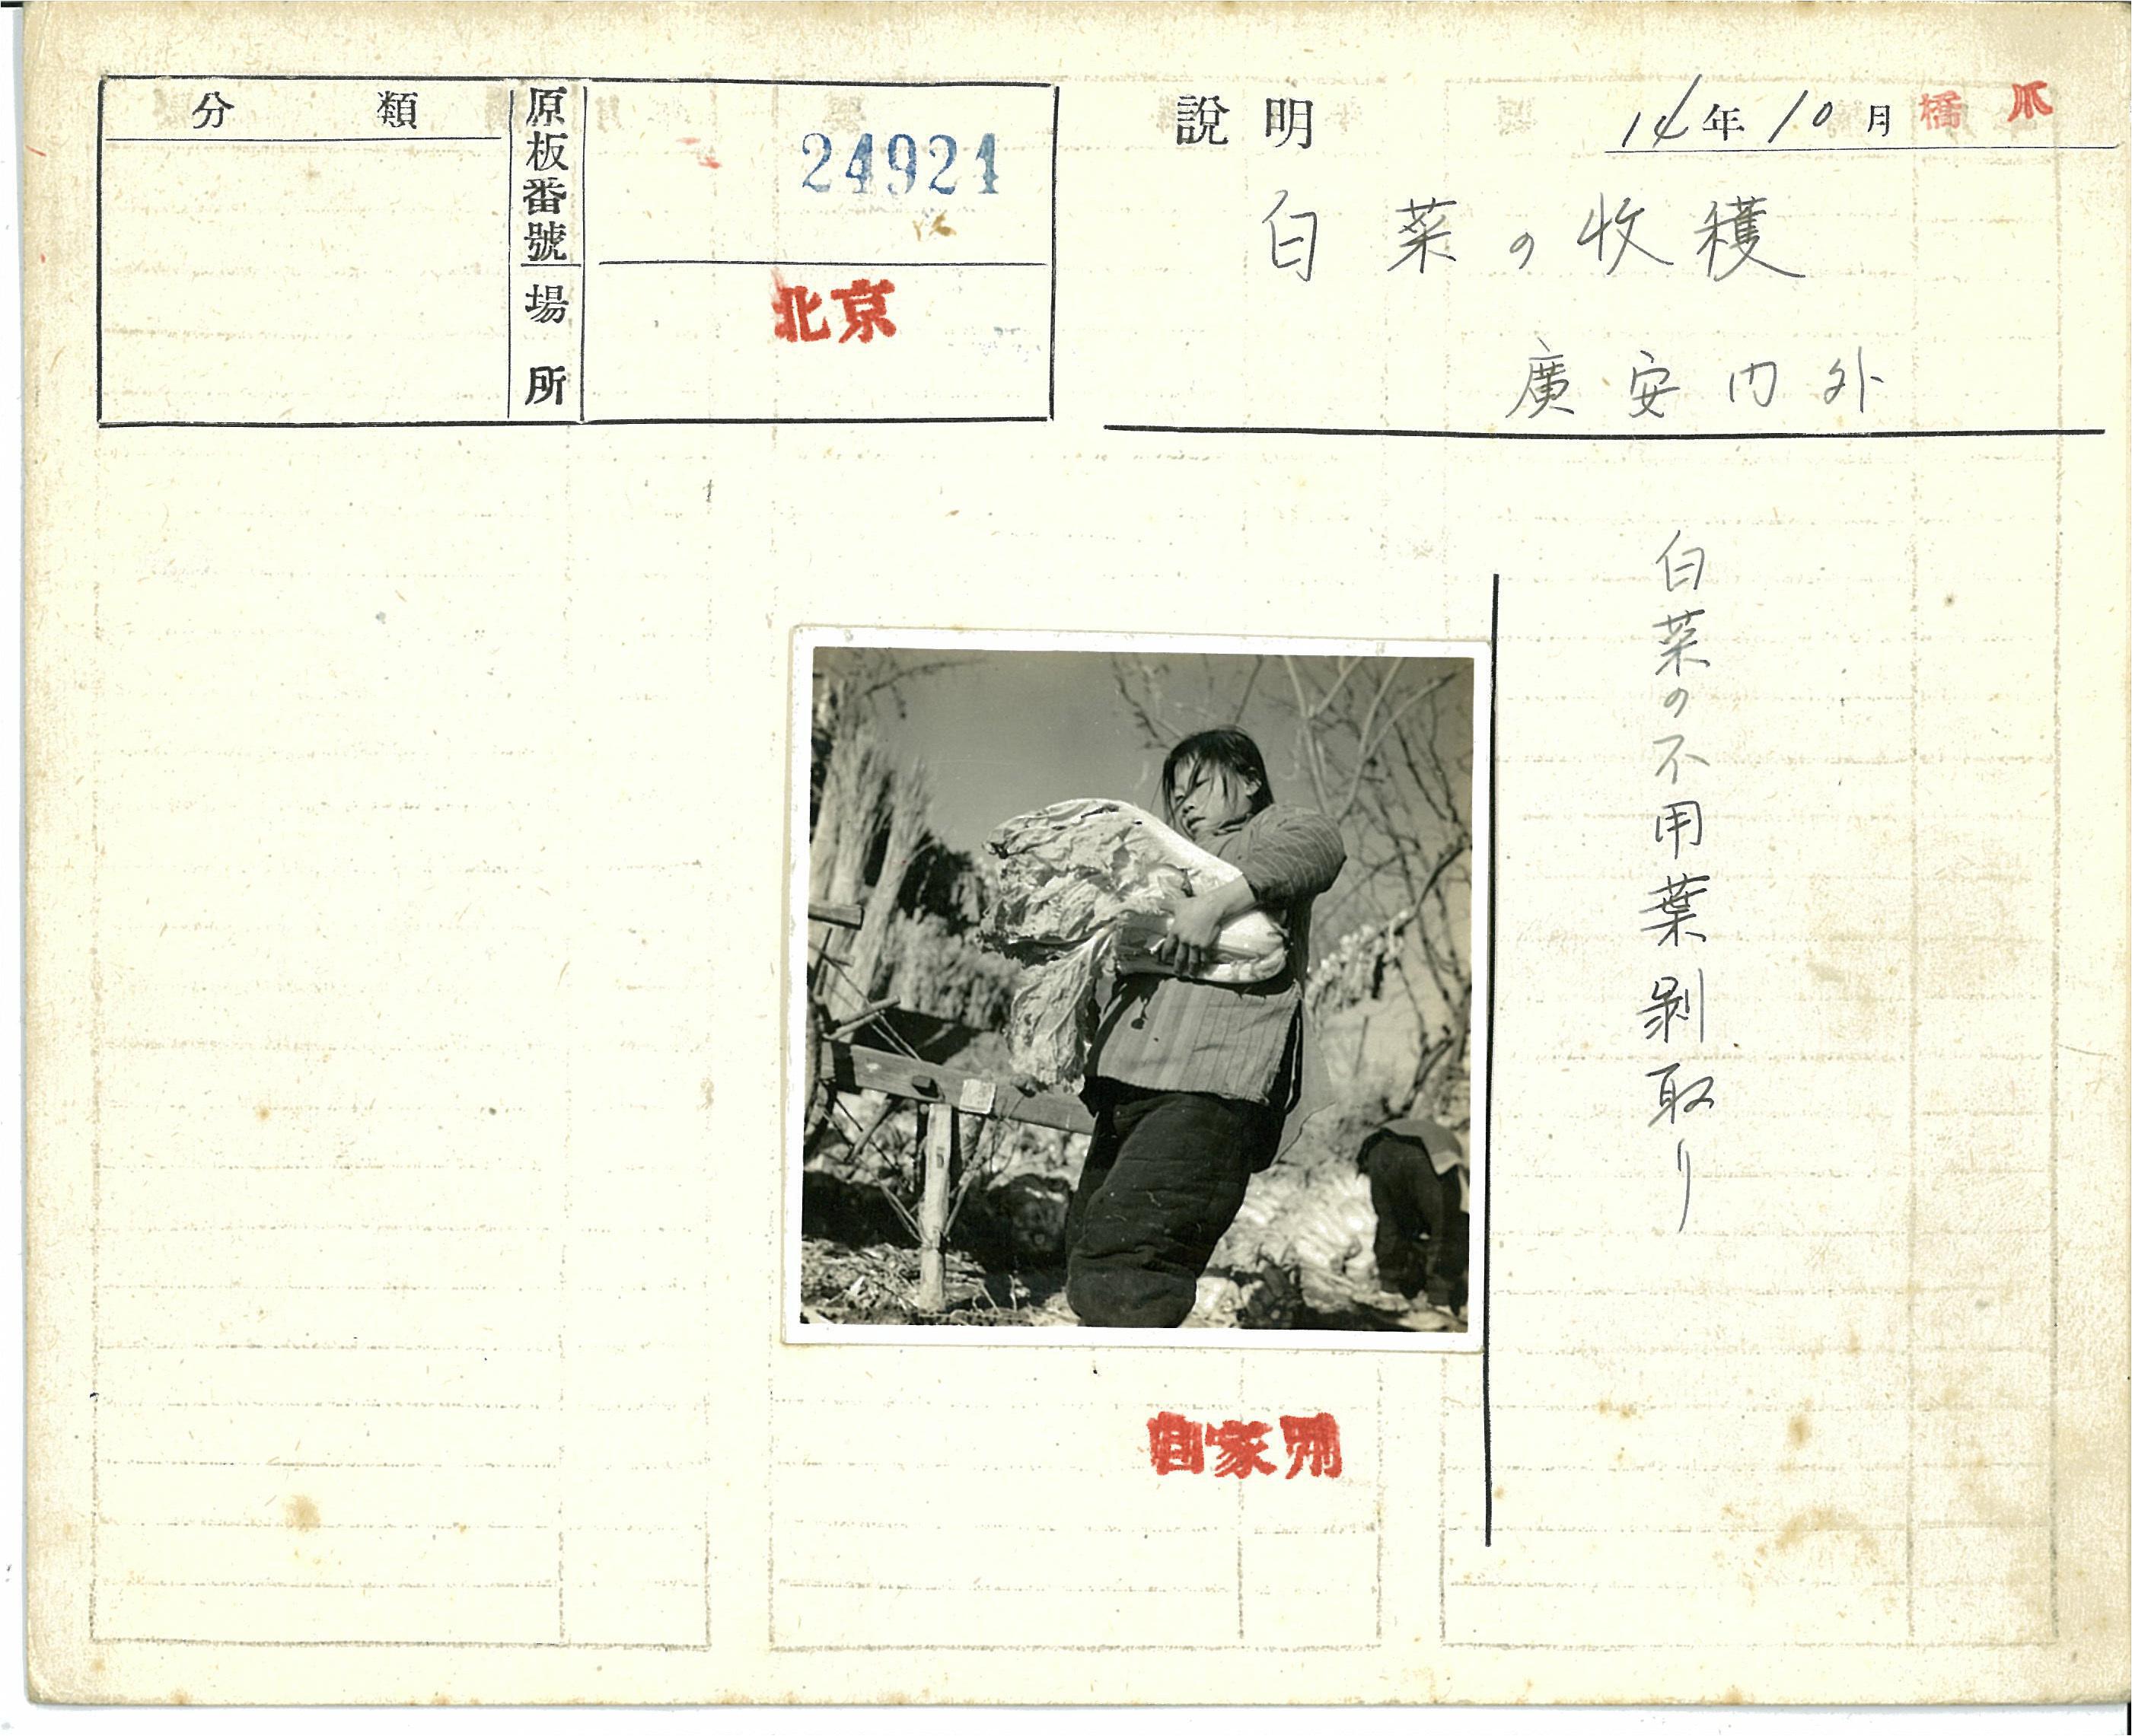 分類
原板番號
24921
場所
北京
說明
14年10月 橋爪
白菜の收穫
廣安内外
白菜の不用葉剥取り
自家用